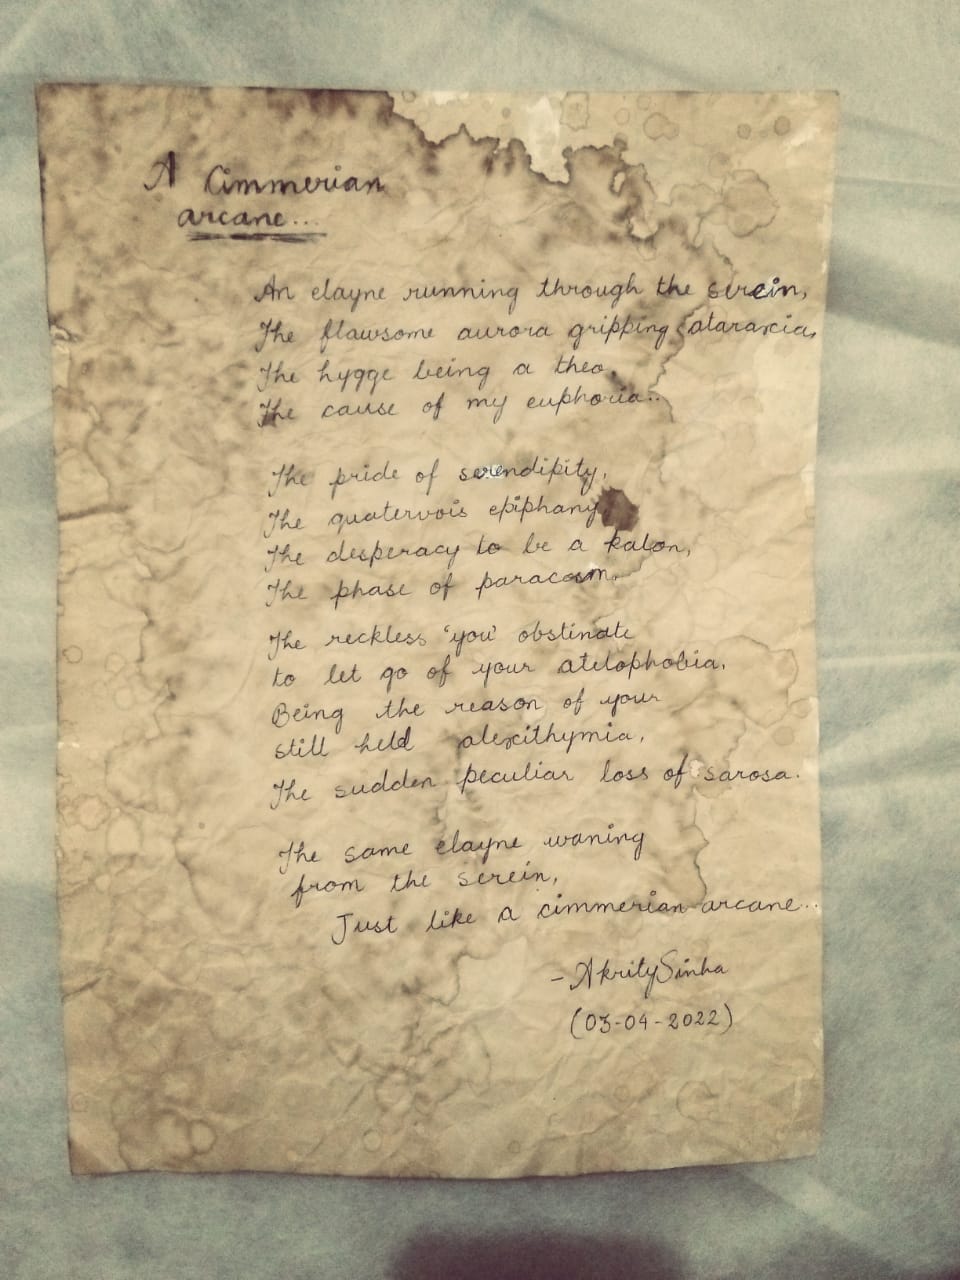 A Cimmerian
arcane...
An elayne running through the serein,
The flawsome aurora gripping ataraxia,
The hygge being a theo,
The cause of my euphoria..
The pride of serendipity,
The quatervois epiphany
The desperacy to be a kalon,
The phase of paracosm.
The reckless 'you' obstinate
to let go of your atelophobia,
Being the reason of your
still held alexithymia,
The sudden peculiar loss of sarosa.
The same elayne waning
from the serein,
Just like a cimmerian arcane...
- Akrity Sinha
(03-04-2022)